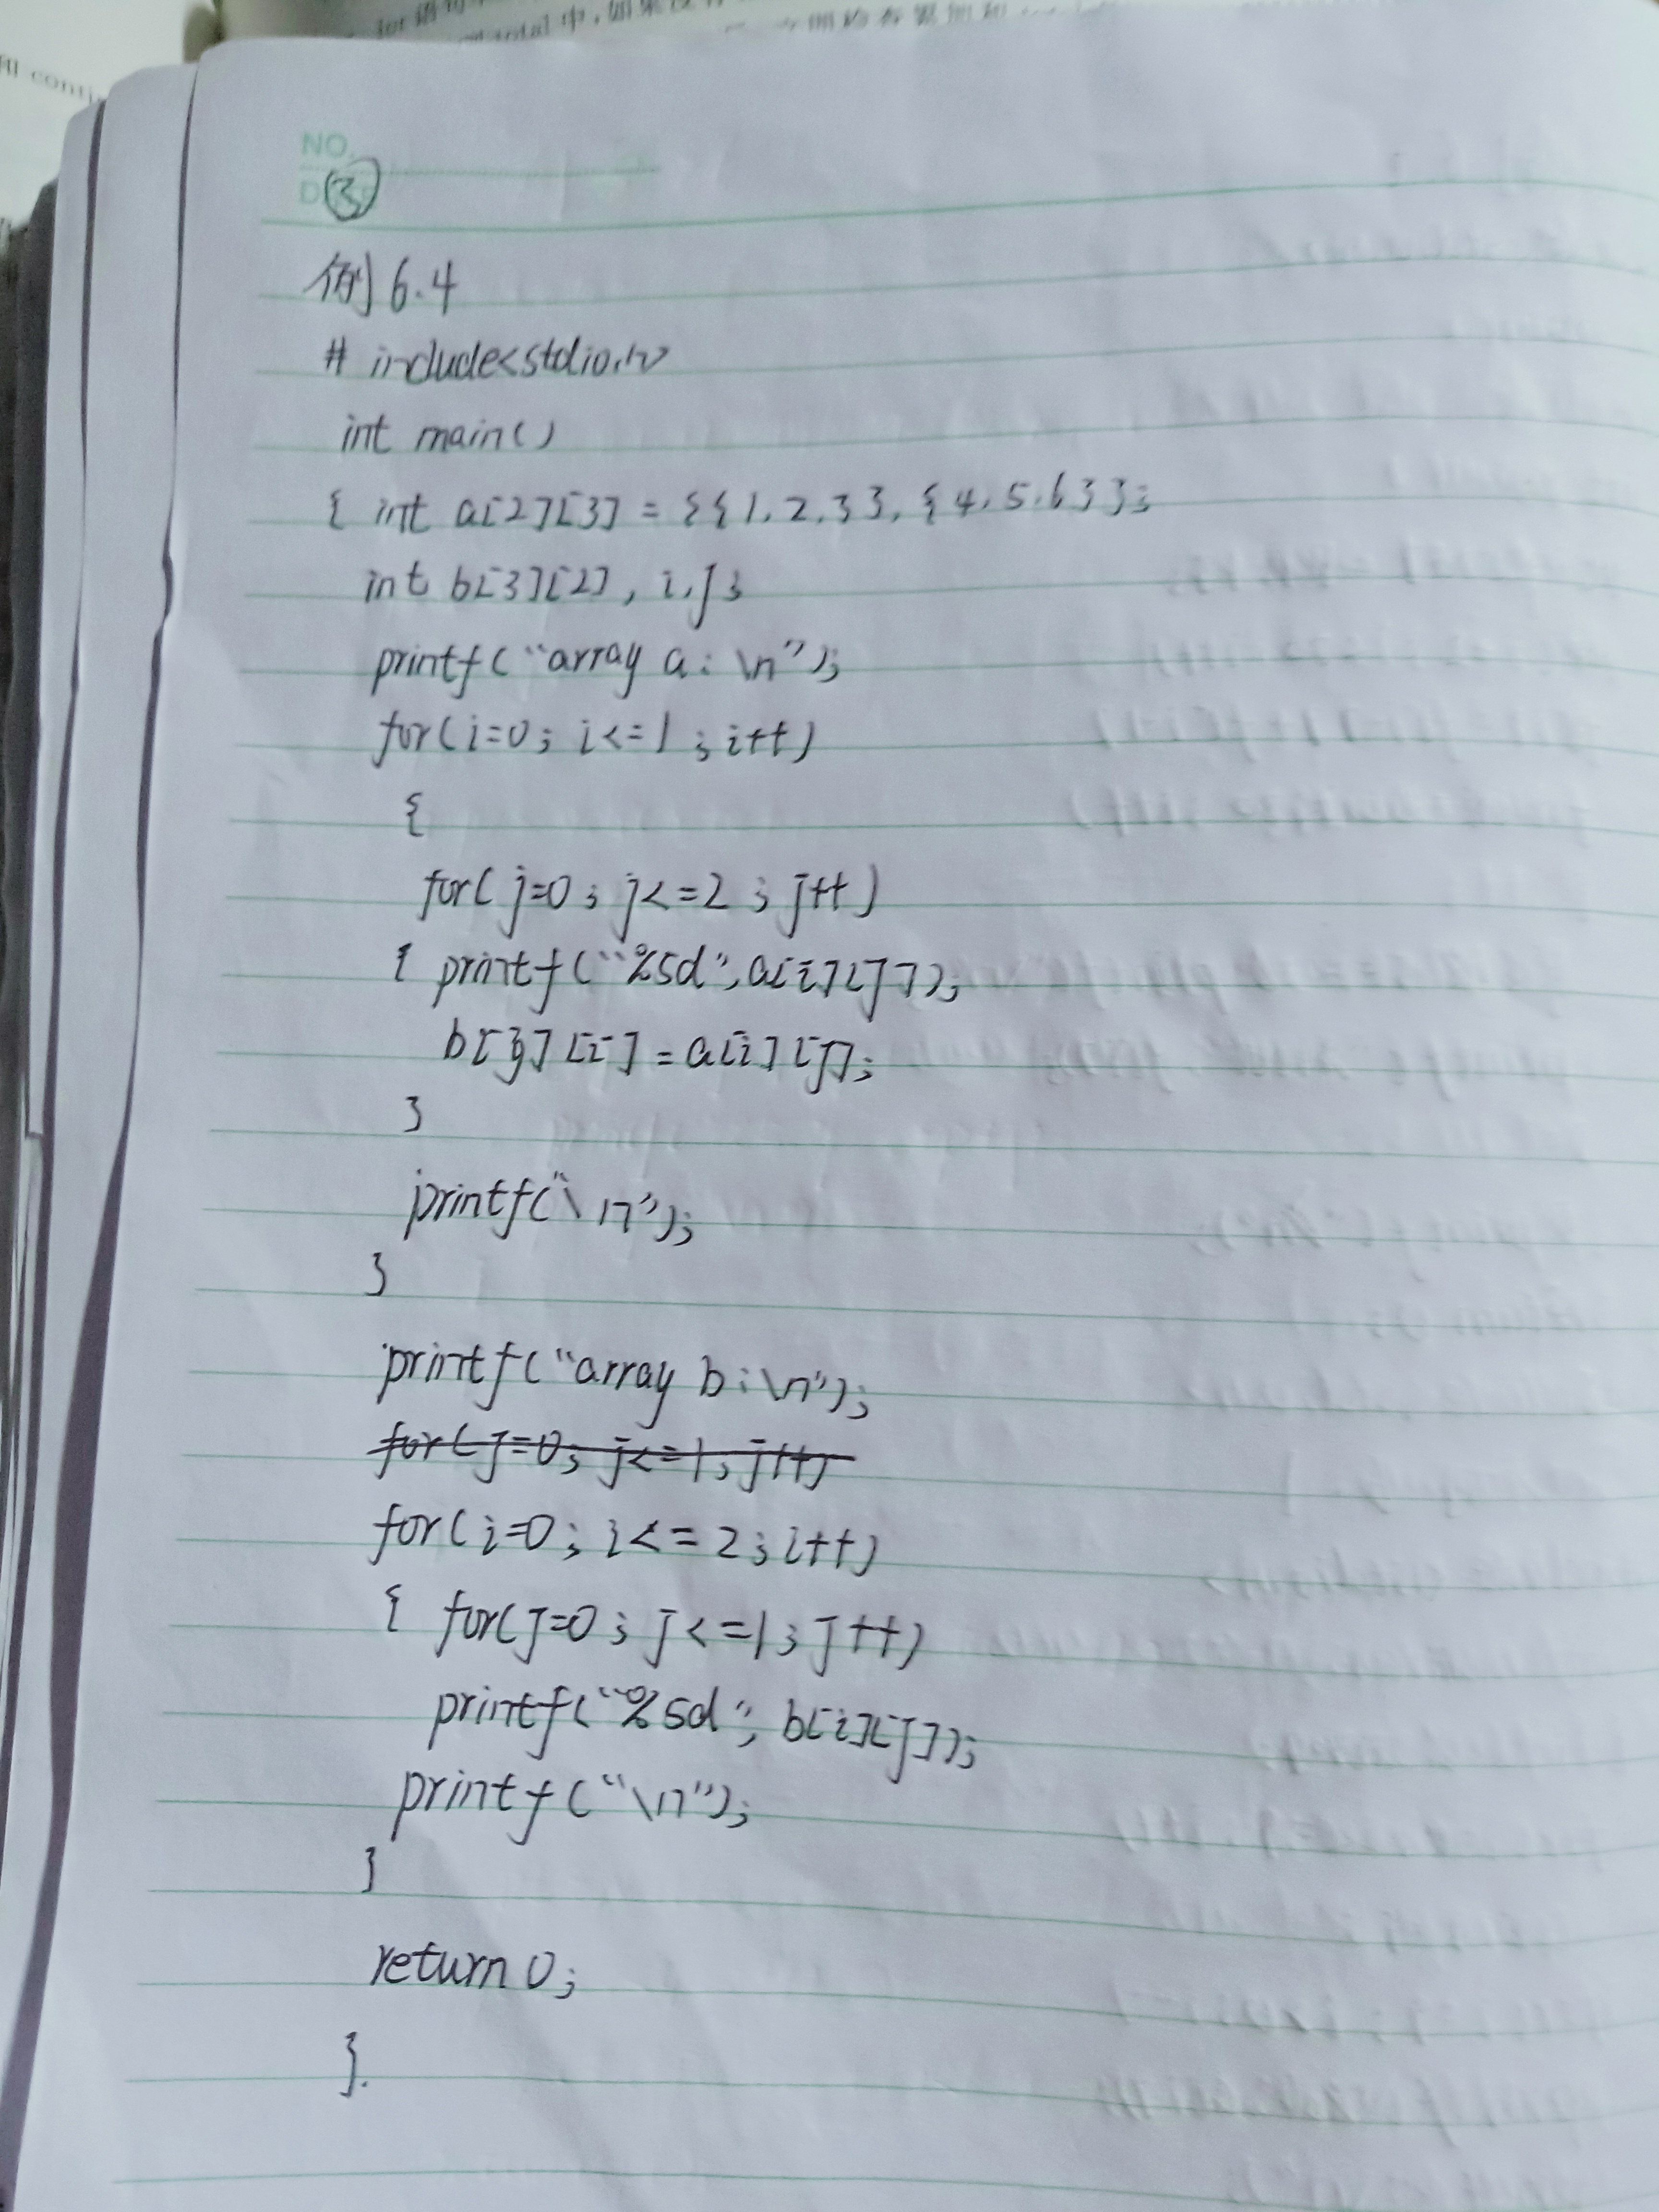 for
total 中,如果没有
和 conti
NO.
③
例6.4
# include<stdio.h>
int main()
{ int a[2][3] = {{1,2,3}, {4,5,6}};
int b[3][2], i,j;
printf("array a: \n");
for(i=0; i<=1; i++)
{
for(j=0; j<=2; j++)
{ printf("%5d",a[i][j]);
b[j][i] = a[i][j];
}
printf("\n");
}
printf("array b:\n");
for(j=0; j<=1; j++)
for(i=0; i<=2; i++)
{ for(j=0; j<=1; j++)
printf("%5d", b[i][j]);
printf("\n");
}
return 0;
}.